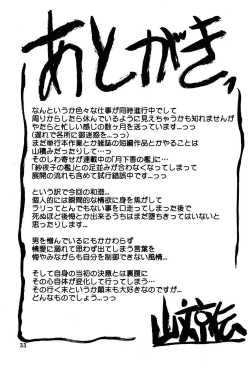 あとがき
なんというか色々な仕事が同時進行中でして
周りからしたら休んでいるように見えちゃうかも知れませんが
やたらと忙しい感じの数ヶ月を送っています…っっ
(遅れて各所に御迷惑を…っっ)
まだ単行本作業とか雑誌の短編作品とかやることは
山積みだったりして…っっ
そのしわ寄せが連載中の「月下香の檻」に…
「紗夜子の檻」との足並みが合わなくなってしまって
展開の流れも含めて試行錯誤中です…っっ
という訳で今回の和遊…
個人的には瞬間的な情欲に身を焦がして
ラリってとんでもない事を口走ってしまった後で
死ぬほど後悔とか出来るうちはまだ堕ちきってはいないと
思ったりします…
男を憎んでいるにもかかわらず
情愛に溺れて思わず出てしまう言葉を
悔やみながらも自分を制御できない風情…
そして自身の当初の決意とは裏腹に
その心自体が変化して行ってしまう…
その行く末というか顛末も大好きなのですが…
どんなものでしょう…っっ
33